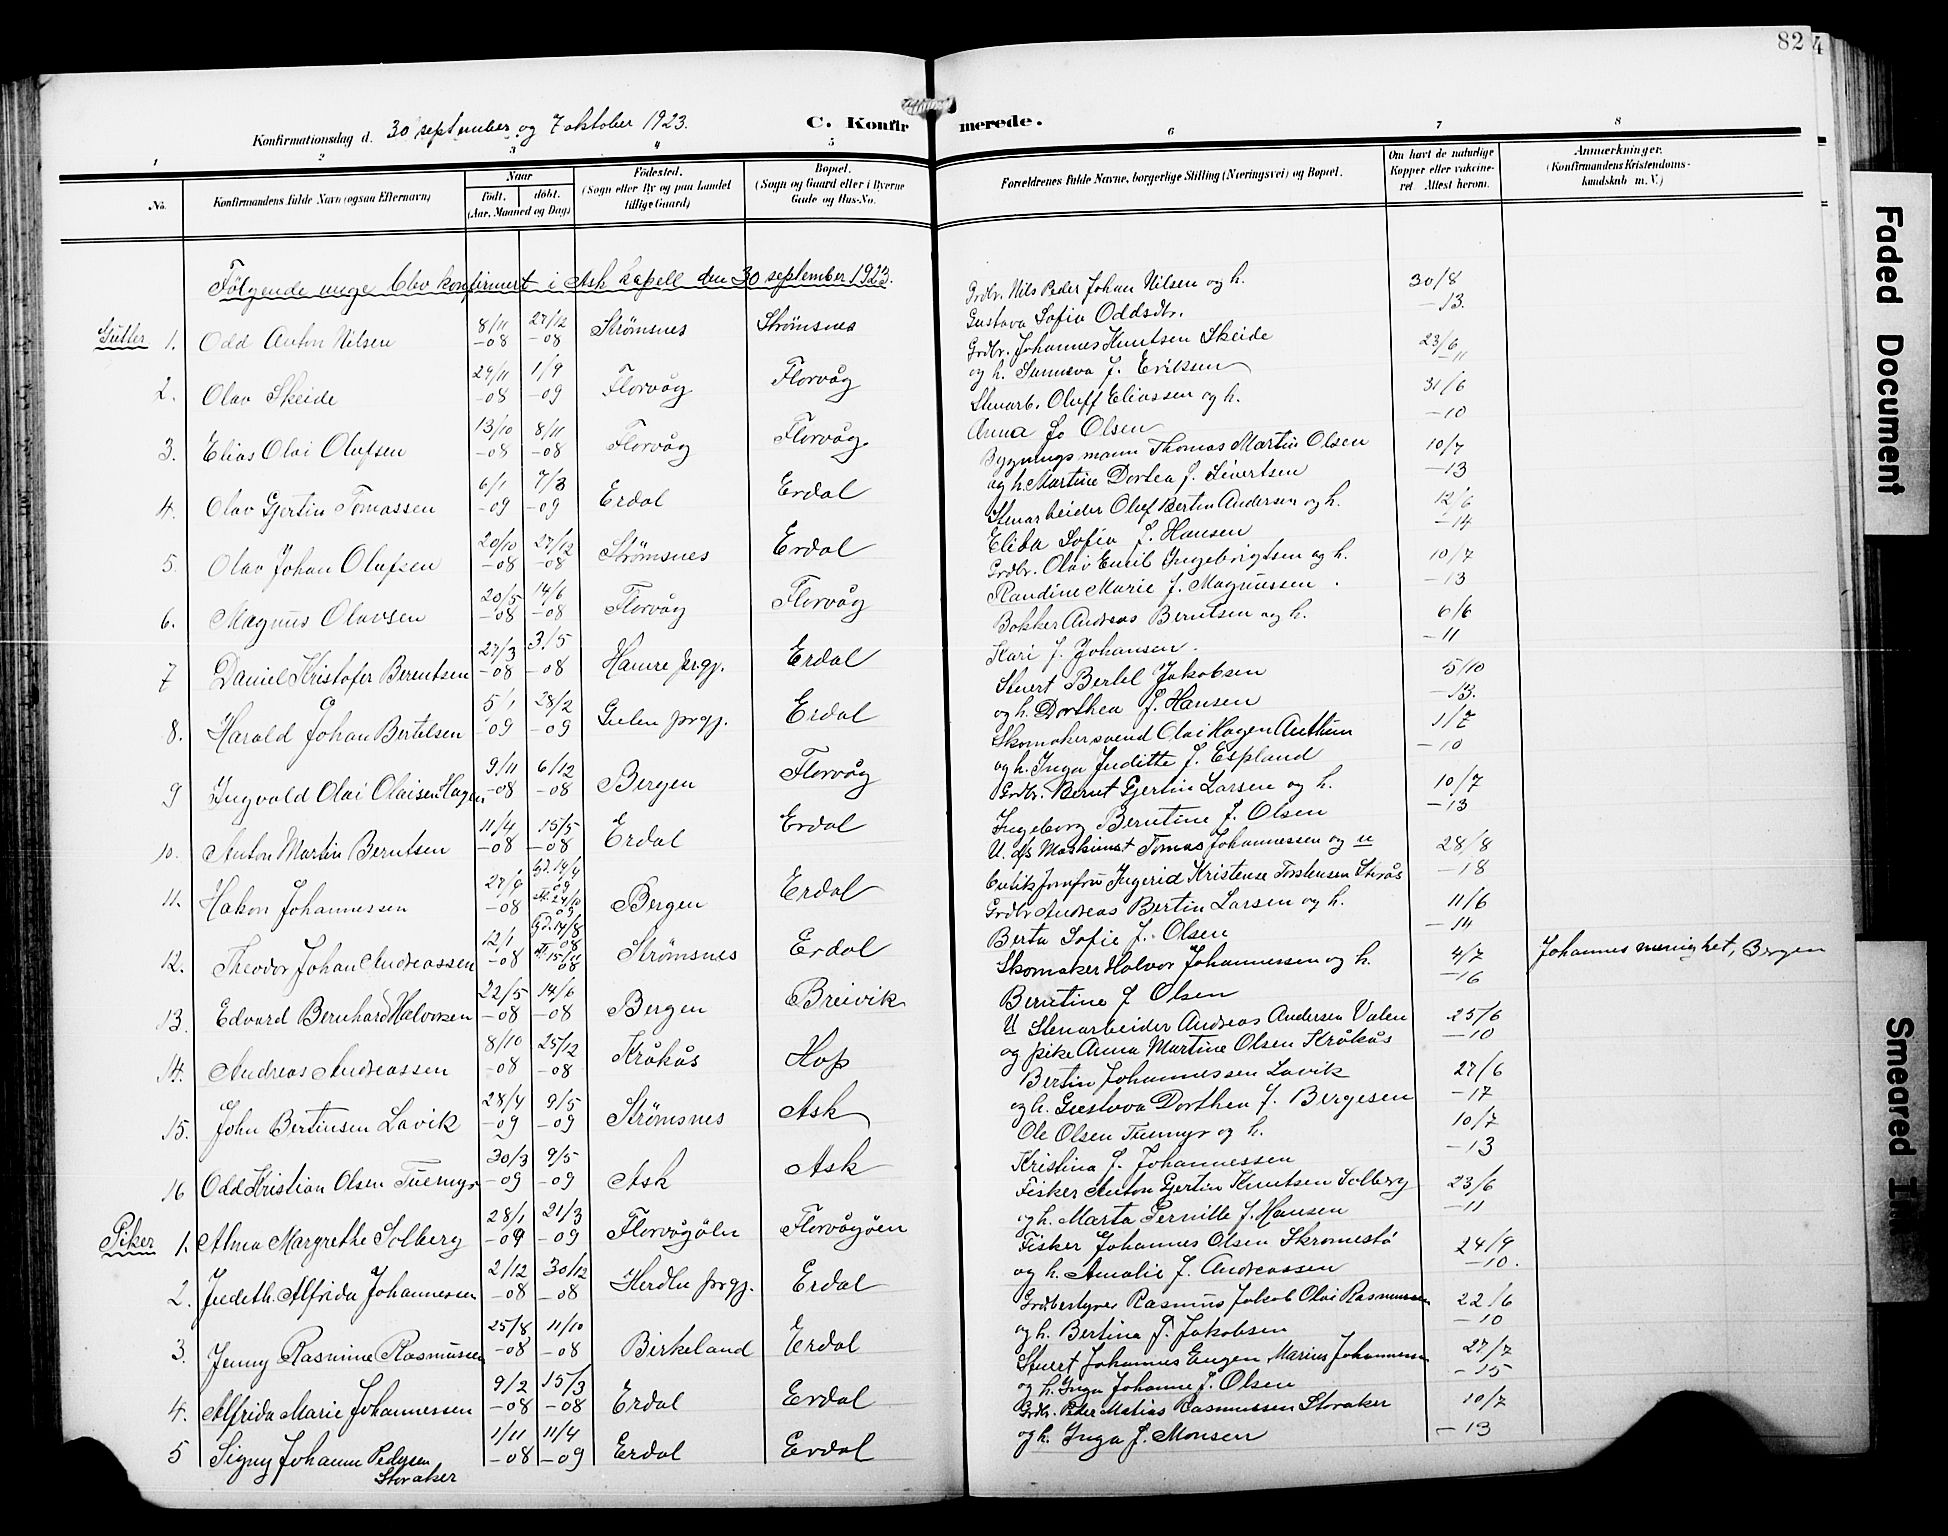 82
4
Konfirmationsdag d. 30 september og 7 oktober 1923.
C. Konfirmerede.
1 2 3 4 5 6 7 8
No.
Konfirmandens fulde Navn (ogsaa Efternavn)
Naar
Født. døbt.
(Aar, Maaned og Dag)
Fødested.
(Sogn eller By og paa Landet
tillige Gaard)
Bopæl.
(Sogn og Gaard eller i Byerne
Gade og Hus-No.
Forældrenes fulde Navne, borgerlige Stilling (Næringsvei) og Bopæl.
Om havt de naturlige
Kopper eller vakcine-
ret. Attest herom.
Anmærkninger.
(Konfirmandens Kristendoms-
kundskab m. V.)
Følgende unge blev konfirmert i Ask kapell den 30 september 1923.
Gutter 1. Odd Anton Nilsen 8/11 -08 27/12 -08 Strømsnes Strømsnes Grdbr. Nils Peder Johan Nilsen og h. Gustava Sofie Oddsdtr. 30/8 -13.
2. Olav Skeide 29/11 -08 1/9 -09 Florvåg Florvåg Grdbr. Johannes Knutsen Skeide og h. Sunneva f. Eriksen 23/6 -11
3. Elias Olai Olufsen 13/10 -08 8/11 -08 Florvåg Florvåg. Stenarb. Oluff Eliassen og h. Anna Olsen 31/6 -10
4. Olav Gjertin Tomassen 6/1 -09 7/3 -09 Erdal Erdal Bygningsmann Thomas Martin Olsen og h. Martine Dortea f. Sivertsen 10/7 -13
5. Olav Johan Olufsen 20/10 -08 27/12 -08 Strømsnes Erdal Stenarbeider Oluf Bertin Andersen og h. Elida Sofia f. Hansen 12/6 -14
6. Magnus Olavsen 20/5 -08 14/6 -08 Florvåg Florvåg Grdbr. Olav Emil Ingebrigtsen og h. Randine Marie f. Magnussen. 10/7 -13
7 Daniel Kristofer Berentsen 27/3 -08 3/5 -08 Hamre prgj. Erdal Bøkker Andreas Berntsen og h. Kari f. Johansen. 6/6 -11
8. Harald Johan Bertelsen 5/1 -09 28/2 -09 Gulen prgj. Erdal Stuert Bertel Jakobsen og h. Dorthea f. Hansen 5/10 -13.
9 Ingvald Olai Olaisen Hagen 9/11 -08 6/12 -08 Bergen Florvåg Skomakersvend Olai Hagen Anthun og h. Inga Juditte f. Espland 1/7 -10
10. Anton Martin Berntsen 11/4 -08 15/5 -08 Erdal Erdal Grdbr. Bernt Gjertin Larsen og h. Ingeborg Berntine f. Olsen 10/7 -13
11. Håkon Johannessen 27/9 -08 Bergen Erdal U. d/s Maskinist Tomas Johannessen og Jomfru Ingerid Kristense Torstensen 28/8 -18
12. Theodor Johan Andreassen 12/1 -08 Gd. 14/8 08 St. 15/11 08 Strømsnes Erdal Grdbr Andreas Bertin Larsen og h. Berta Sofie f. Olsen 11/6 -14
13. Edvard Bernhard Halvorsen 22/5 -08 14/6 -08 Bergen Breivik Skomaker Halvor Johannessen og h. Berntine f Olsen 4/7 -16 Johannes menighet, Bergen
14. Andreas Andreassen 8/10 -08 25/12 -08 Kråkås Hop U Stenarbeider Andreas Andersen Valen og pike Anna Martine Olsen Kråkås 25/6 -10
15. John Bertinsen Lavik 28/4 -09 9/5 -09 Strømsnes Ask Bertin Johannessen Lavik og h. Gustava Dorthea f. Bergesen 27/6 -17
16 Odd Kristian Olsen Tuemyr 30/3 -09 9/5 -09 Ask Ask Ole Olsen Tuemyr og h. Kristina f. Johannessen 10/7 -13
Piker 1. Alma Margrethe Solberg 28/1 -09 21/3 -09 Florvågøen Florvågøen Fisker Anton Gjertin Knutsen Solberg og h. Marta Pernille f. Hansen 23/6 -11
2. Judith Alfrida Johannessen 2/12 -08 30/12 -08 Herdla prgj. Erdal Fisker Johannes Olsen Skromestø og h. Amalie f. Andreassen 24/9 -10.
3. Jenny Rasmine Rasmussen 25/8 -08 11/10 -08 Birkeland Erdal Grdbestyrer Rasmus Jakob Olai Rasmussen og h. Bertina f. Jakobsen 22/6 -10
4. Alfrida Marie Johannessen 9/2 -08 15/3 -08 Erdal Erdal Stuert Johannes Eugen Marius Johannessen og h. Inga Johanne f. Olsen 27/7 -15
5 Signy Johanne Pedersen Storaker 1/11 -08 11/4 -09 Erdal Erdal Grdbr. Peter Matias Rasmussen Storaker og h. Inga f. Monsen 10/7 -13
Faded Document
Smeared Ink